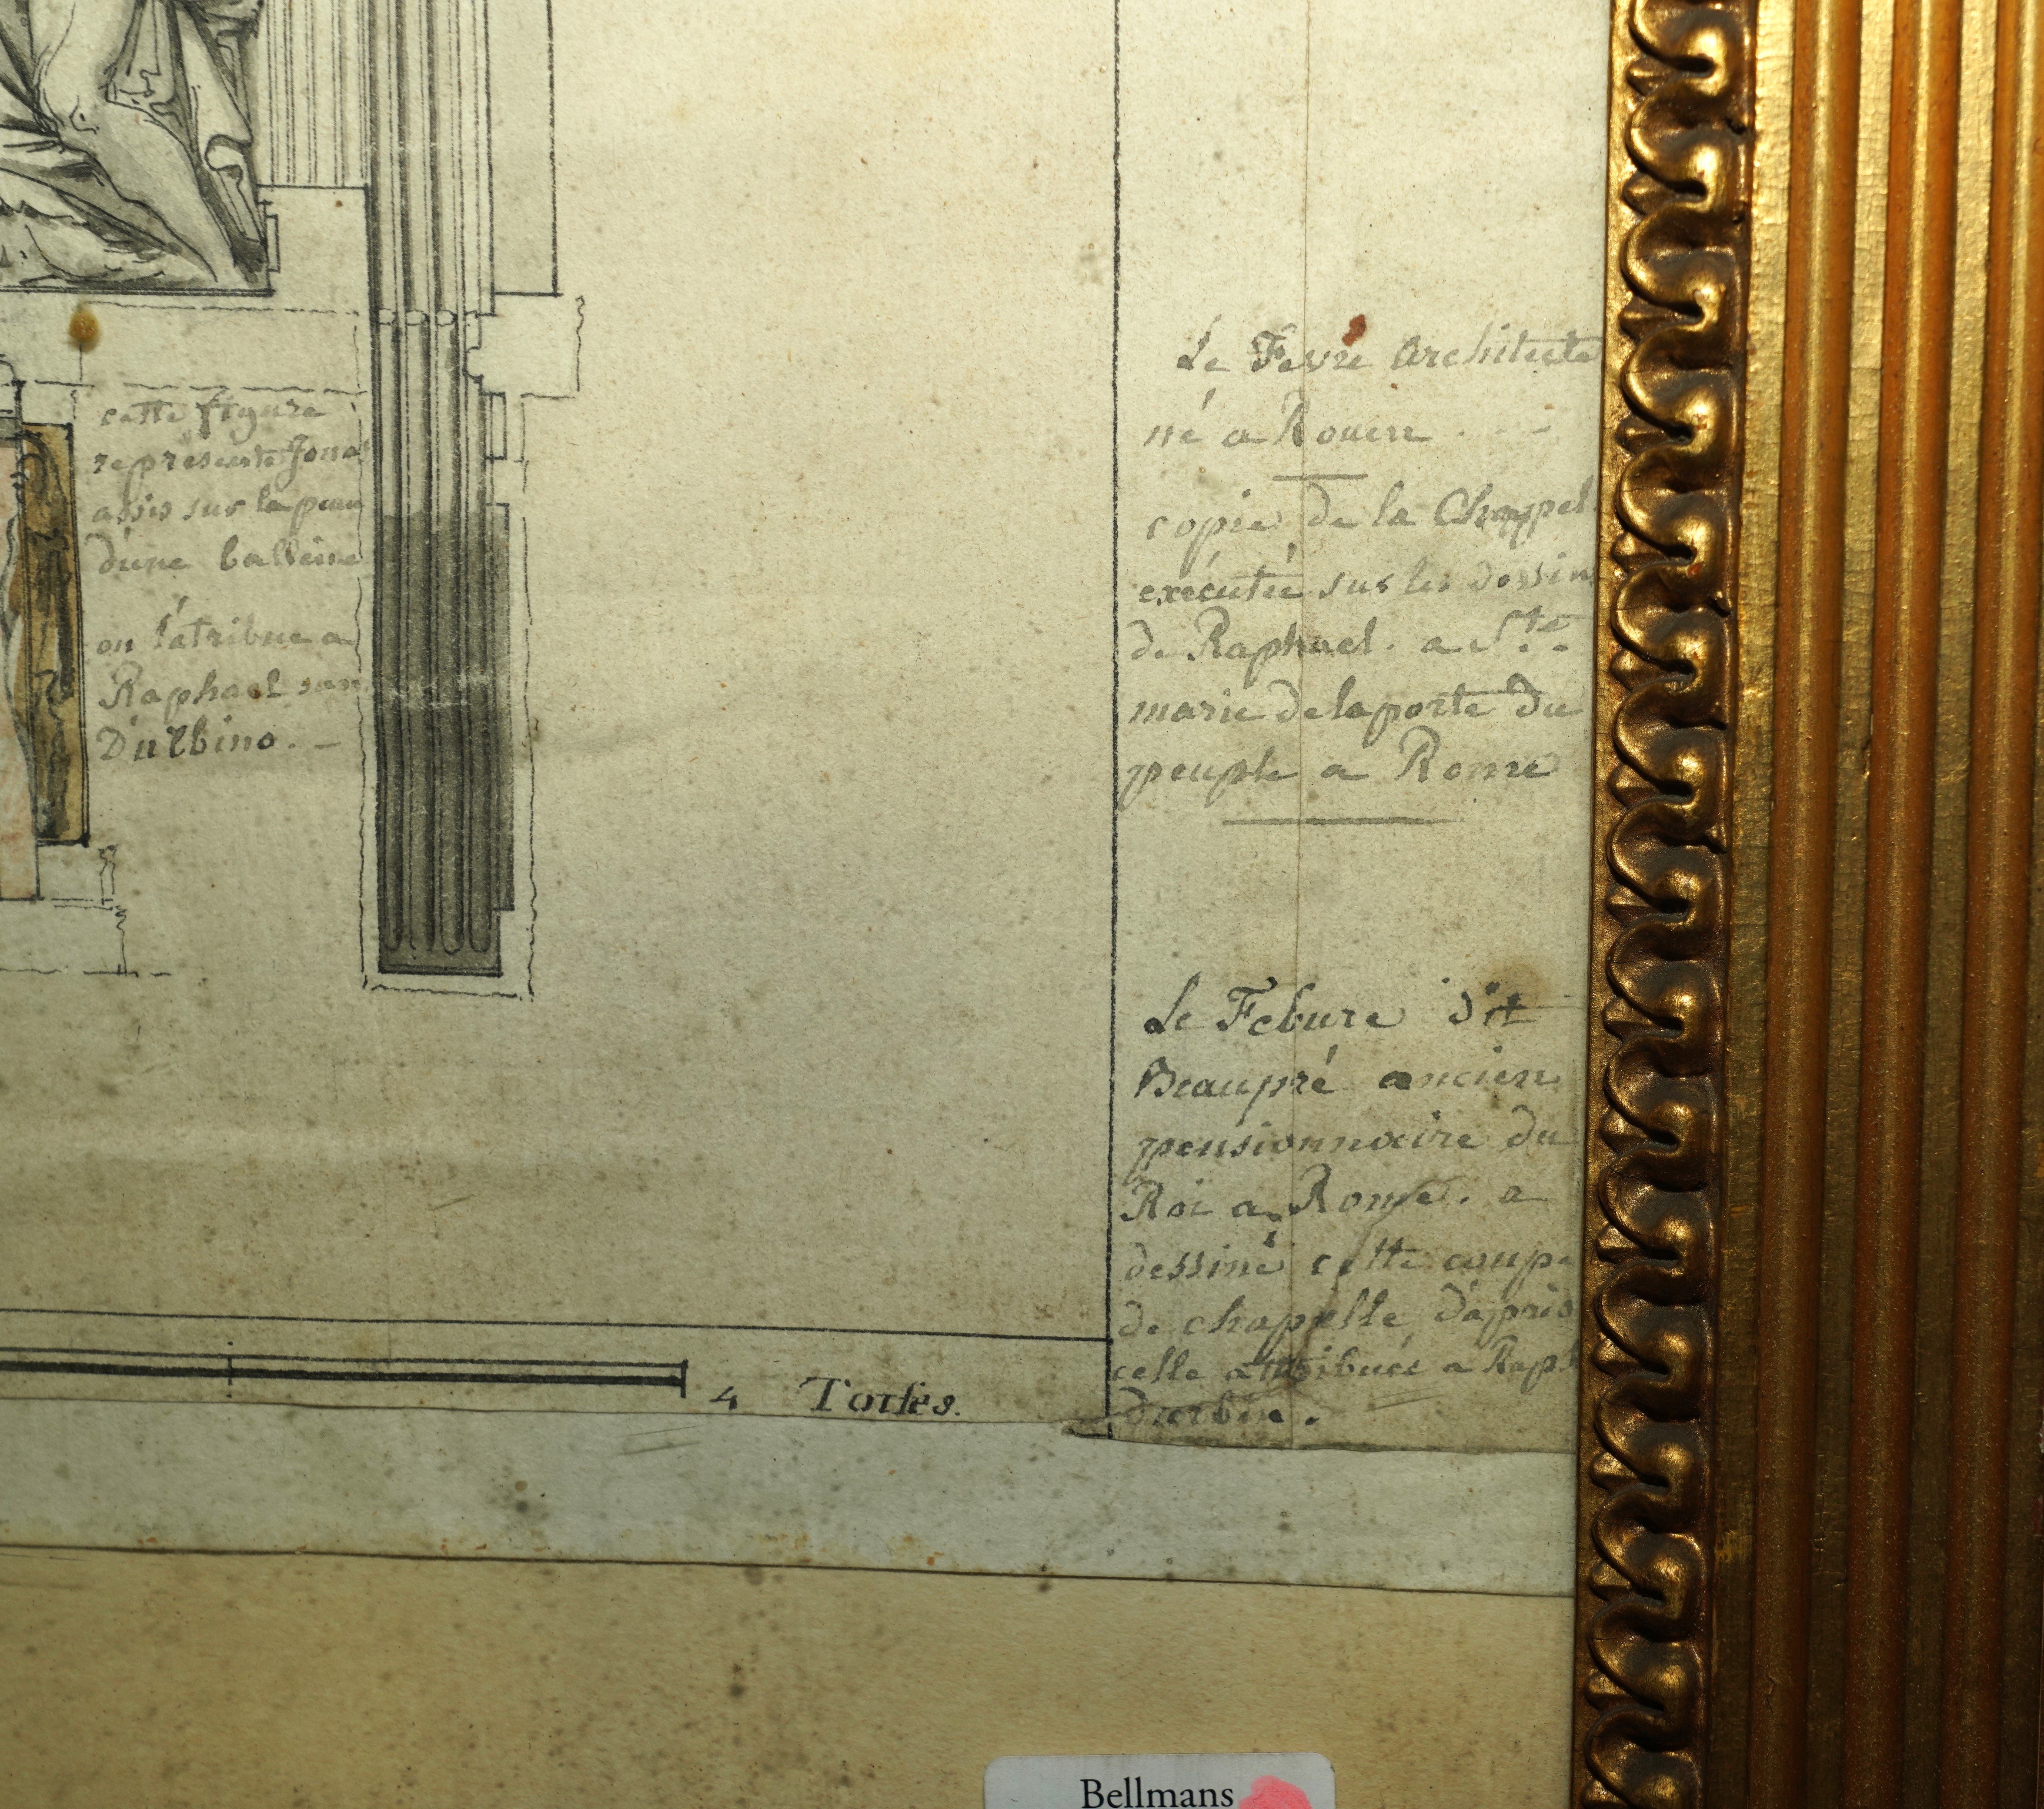 cette figure
représente Jonas
assis sur la peau
d'une balleine
on l'atribue a
Raphael san
D'ulbino. -
Le Fevre Architecte
né a Rouen . - -
copie de la Chapel
exécutée sur les dessin
de Raphael. a Ste
marie de la porte du
peuple a Rome
Le Febure dit
Beaupré ancien
pensionnaire du
Roi a Rome. a
dessiné cette coupe
de chapelle d'apris
celle attribuée a Raph
Durbin.
4 Toises.
Bellmans